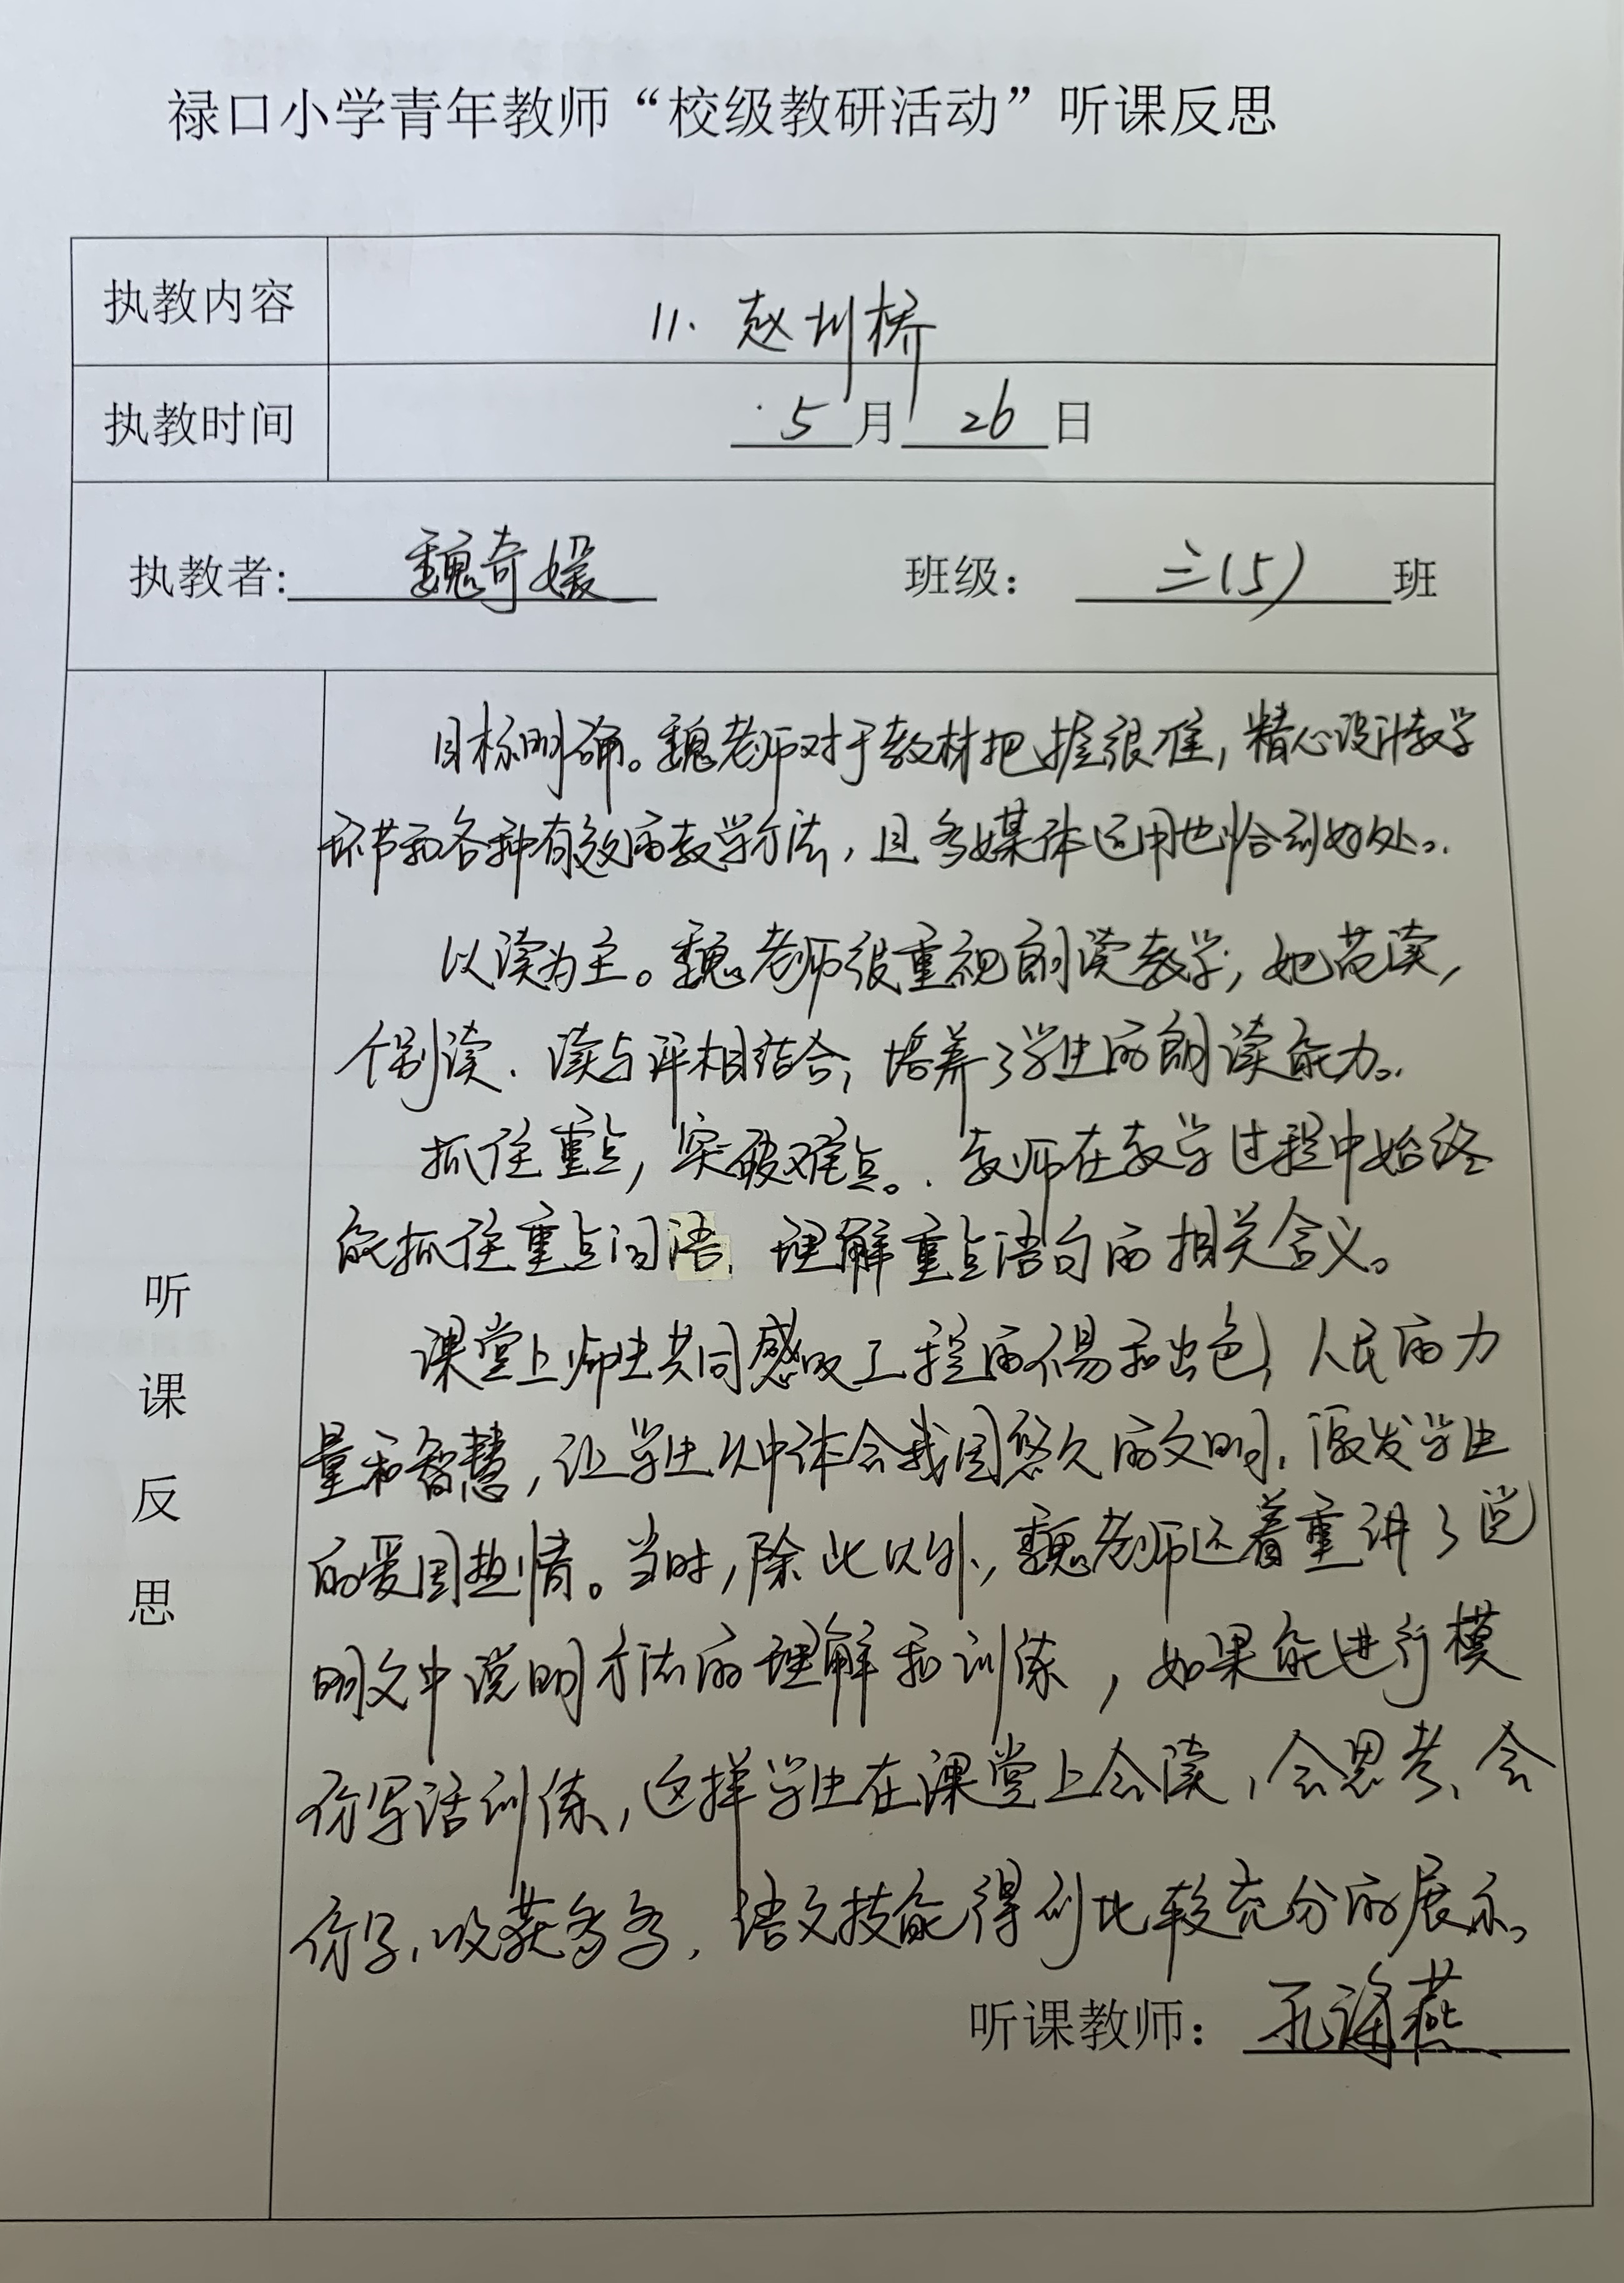 禄口小学青年教师“校级教研活动”听课反思
执教内容
11. 赵州桥
执教时间
5月26日
执教者:魏奇媛 班级：三(5)班
听课反思
目标明确。魏老师对于教材把握很准，精心设计教学
环节和各种有效的教学方法，且多媒体运用也恰到好处。
以读为主。魏老师很重视朗读教学，她范读，
个别读、读与评相结合，培养了学生的朗读能力。
抓住重点，突破难点。教师在教学过程中始终
能抓住重点词语、理解重点语句的相关含义。
课堂上师生共同感叹工程的不易和出色，人民的力
量和智慧，让学生从中体会我国悠久的文明，激发学生
的爱国热情。当时，除此以外，魏老师还着重讲了说
明文中说明方法的理解和训练，如果能进行模
仿写话训练，这样学生在课堂上会读，会思考、会
仿写，收获多多，语文技能得到比较充分的展示。
听课教师：孔 燕